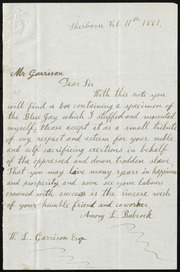 Sherborn Feb. 11th 1861.
Mr Garrison
Dear Sir
With this note you
will find a box containing a specimen of
the Blue Jay which I stuffed and mounted
myself, Please accept it as a small tribute
of my respect and esteem for your noble
and self sacrificing exertions in behalf
of the oppressed and down trodden slave.
That you may have many years in happiness
and prosperity and soon see your labours
crowned with success is the sincere wish
of your humble friend and coworker
Amory L. Babcock
W. L. Garrison Esq.